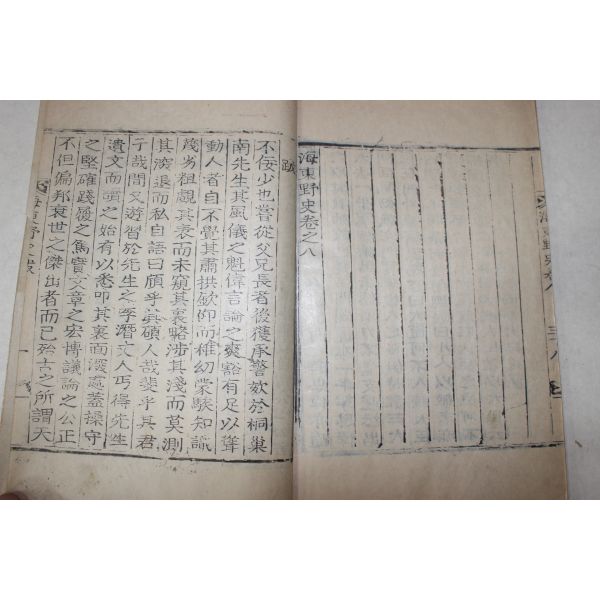 海東野史卷之八
跋
不佞少也嘗從父兄長者後獲承警欬於桐巢
南先生其風儀之魁偉言論之爽豁有足以聳
動人者自不覺其肅拱欽仰而稚幼蒙騃知識
淺劣粗覩其表而未窺其裏略涉其淺而莫測
其深退而私自語曰頎乎其碩人哉斐乎其君
子哉間又遊習於先生之季潛丈人丐得先生
遺文而頌之始有以悉叩其裏面深處蓋操守
之堅確踐履之篤實文章之宏博議論之公正
不但偏邦衰世之傑出者而已殆古之所謂天